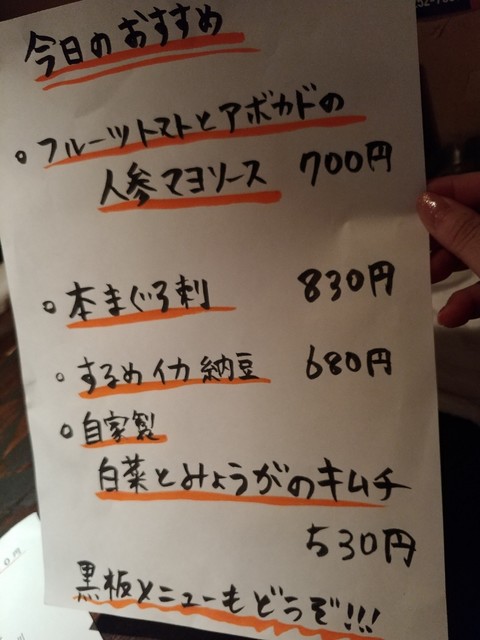 今日のおすすめ
○フルーツトマトとアボカドの
人参マヨソース 700円
○本まぐろ刺 830円
○するめイカ納豆 680円
○自家製
白菜とみょうがのキムチ
530円
黒板メニューもどうぞ!!!